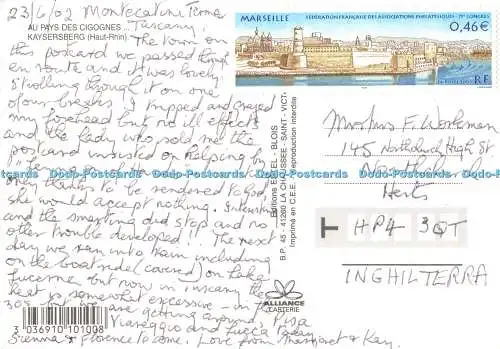 23/6/02 Montecatini Terme
Tuscany.
AU PAYS DES CIGOGNES ...
KAYSERSBERG (Haut-Rhin)
The town on
this postcard we passed through
en route and it was lovely
strolling through it on one
of our breaks. I tripped and grazed
my forehead but no ill effects
and the lady who sold me the
postcard insisted on helping by
only thanks to be rendered to God,
she would accept nothing.
and the smarting did stop and no
other trouble developed!! The next
day we ran into rain including
on the boat ride (covered) on Lake
Lucerne but now in Tuscany the
heat is somewhat excessive - in the
30s but we are getting around. Pisa
Viareggio and Lucca today
Sienna & Florence to come. Love from Margaret & Kay.
MARSEILLE
FÉDÉRATION FRANÇAISE DES ASSOCIATIONS PHILATÉLIQUES - 75e CONGRÈS
0,46€
RF
LA POSTE 2002
F. Workman
145 Northchurch High St
Northchurch
Herts
T HP4 3QT
INGHILTERRA
Editions ESTEL - BLOIS
B.P. 45 - 41260 LA CHAUSSEE - SAINT - VICT.
Imprimé en C.E.E. - reproduction interdite
ALLIANCE
CARTERIE
3 036910 101008
Dodo-Postcards